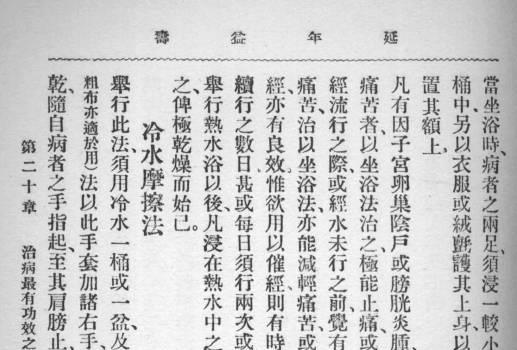 延年益壽
當坐浴時、病者之兩足、須浸一較小
桶中、另以衣服或絨氈護其上身、以
置其額上、
凡有因子宮卵巢陰戶或膀胱炎腫、
痛苦者、以坐浴法治之、極能止痛、或
經流行之際、或經水未行之前、覺有
痛苦、治以坐浴法、亦能減輕痛苦、或
經、亦有良效、惟欲用以催經、則有時
續行之數日、甚或每日須行兩次、或
舉行熱水浴以後、凡浸在熱水中之
之、俾極乾燥而始已。
冷水摩擦法
舉行此法、須用冷水一桶或一盆、及
粗布亦適於用）法以此手套加諸右手、
乾、隨自病者之手指起、至其肩膀止、
第二十章 治病最有功效之